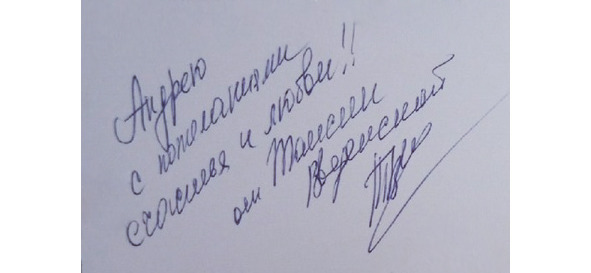 Андрею
с пожеланиями
счастья и любви!!
от Таисии
Введенской